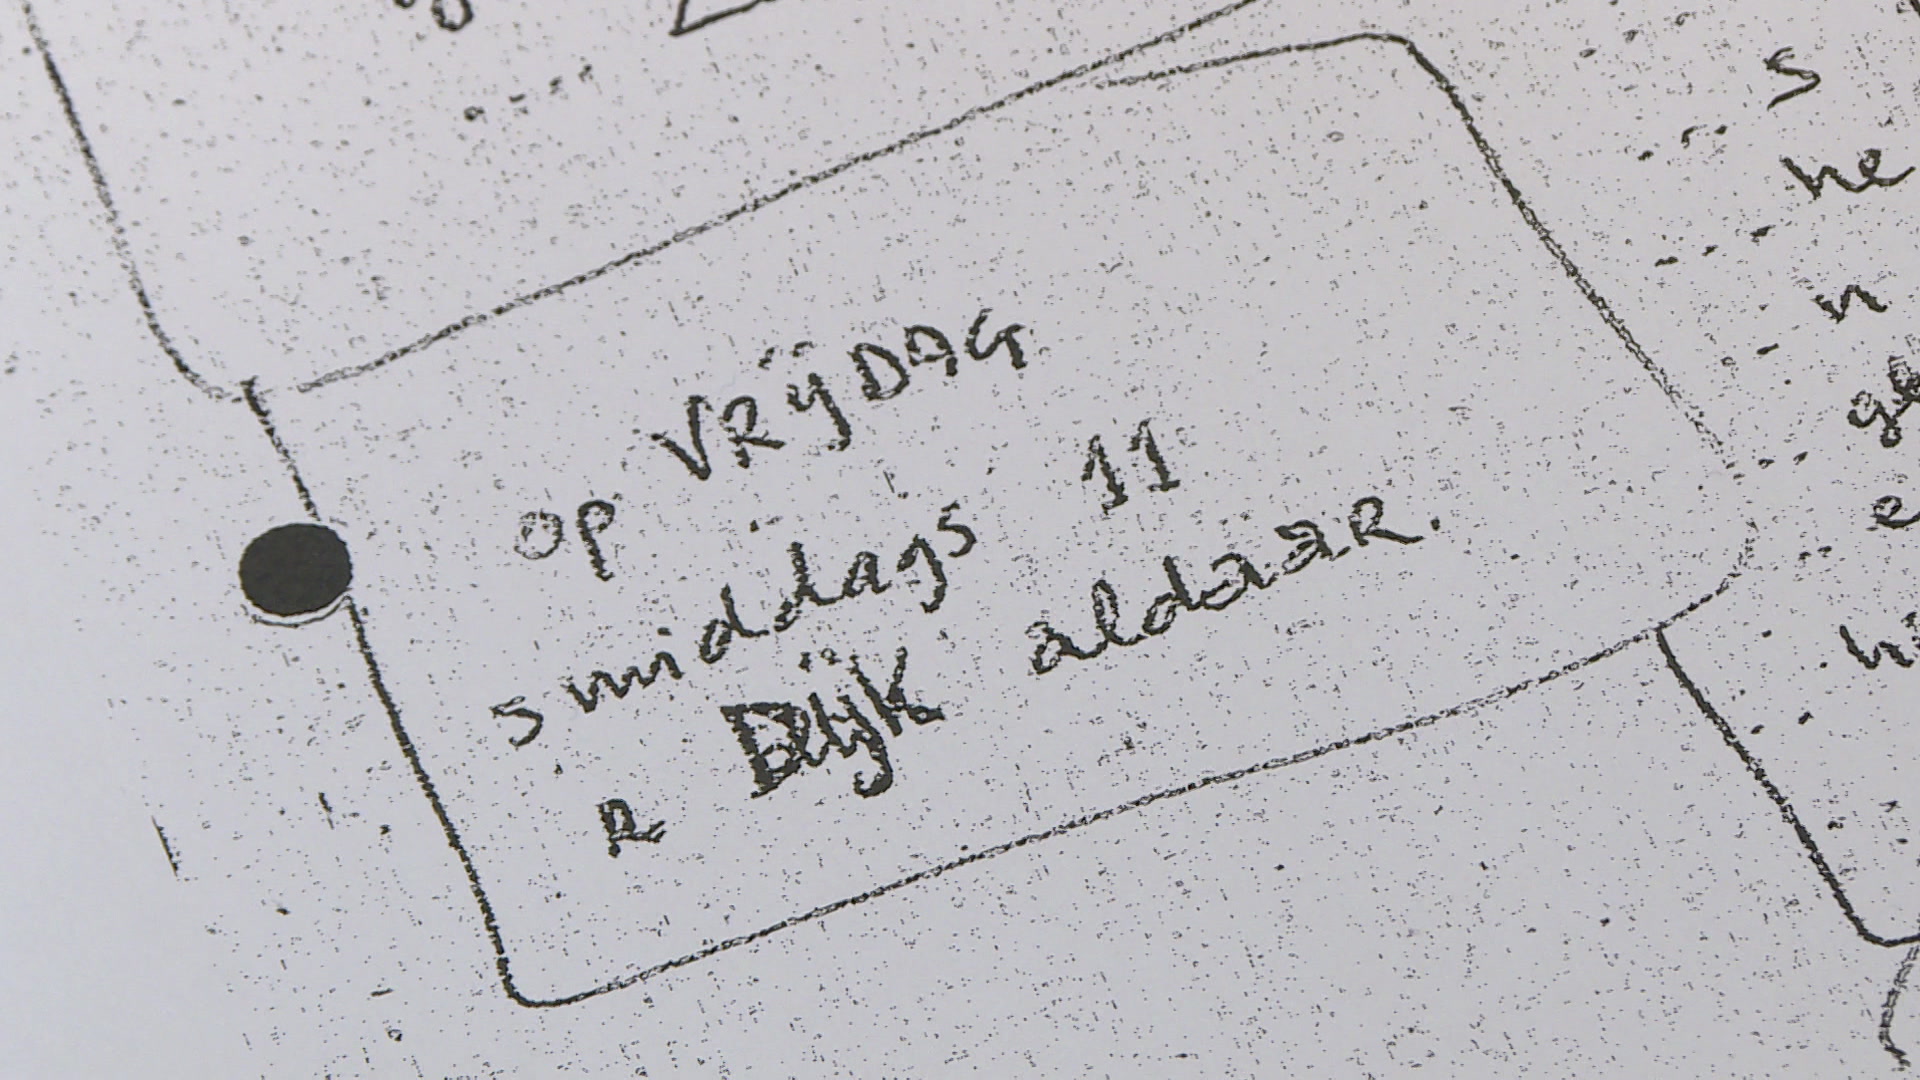 op VRijDAG
smiddags 11
R Dijk aldaaR.
s
he
n
ge
e